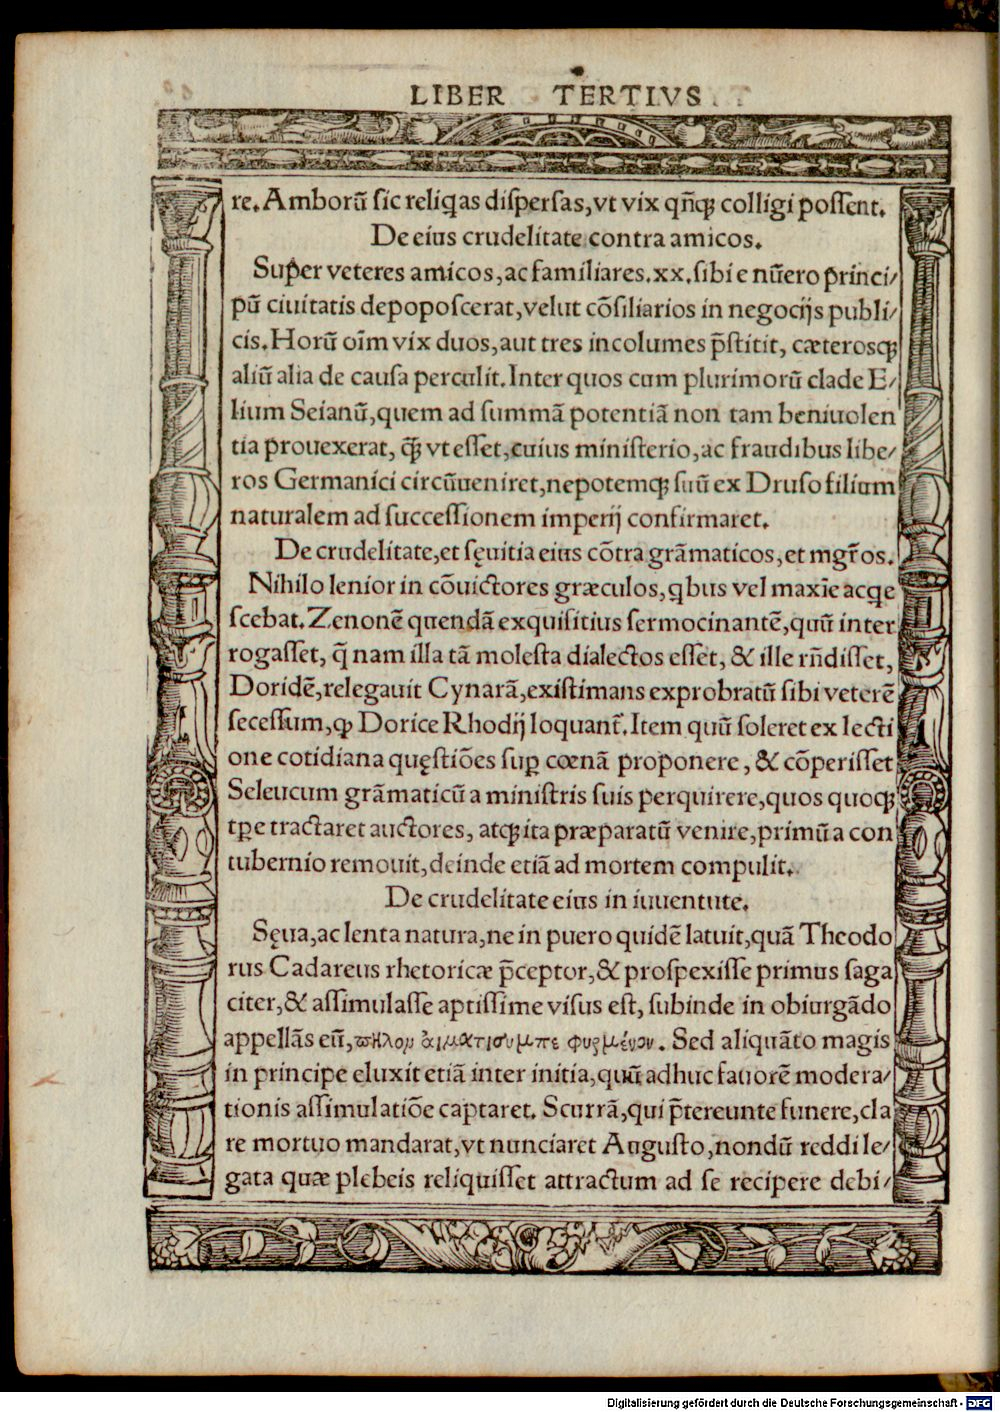 LIBER TERTIVS.
re. Amborū sic reliq̨as dispersas, vt vix qñq; colligi possent.
De eius crudelitate contra amicos.
Super veteres amicos, ac familiares. xx. sibi e nũero princi/
pũ ciuitatis depoposcerat, velut cõsiliarios in negocijs publi/
cis. Horũ oĩm vix duos, aut tres incolumes p̃stitit, cæterosq;
aliũ alia de causa perculit. Inter quos cum plurimorũ clade E/
lium Seianũ, quem ad summã potentiã non tam beniuolen
tia prouexerat, q̃; vt esset, cuius ministerio, ac fraudibus libe/
ros Germanici circũueniret, nepotemq; suũ ex Druso filium
naturalem ad successionem imperij confirmaret.
De crudelitate, et sęuitia eius cõtra grãmaticos, et mgr̃os.
Nihilo lenior in cõuictores græculos, qbus vel maxĩe acqe
scebat. Zenonẽ quendã exquisitius sermocinantẽ, quũ inter
rogasset, q̃ nam illa tã molesta dialectos esset, & ille rñdisset,
Doridẽ, relegauit Cynarã, existimans exprobratũ sibi veterẽ
secessum, ꝙ Dorice Rhodij loquant̃. Item quũ soleret ex lecti
one cotidiana quęstiões suꝑ cœnã proponere, & cõperisset
Seleucum grãmaticũ a ministris suis perquirere, quos quoq;
tꝑe tractaret auctores, atq; ita præparatũ venire, primũ a con
tubernio remouit, deinde etiã ad mortem compulit.
De crudelitate eius in iuuentute.
Sęua, ac lenta natura, ne in puero quidẽ latuit, quã Theodo
rus Cadareus rhetoricæ p̃ceptor, & prospexisse primus saga
citer, & assimulasse aptissime visus est, subinde in obiurgãdo
appellãs eũ, πηλον ἁιματισυμπε φυρμένον. Sed aliquãto magis
in principe eluxit etiã inter initia, quũ adhuc fauorẽ modera/
tionis assimulatiõe captaret. Scurrã, qui p̃tereunte funere, cla
re mortuo mandarat, vt nunciaret Augusto, nondũ reddi le/
gata quæ plebeis reliquisset attractum ad se recipere debi/
Digitalisierung gefördert durch die Deutsche Forschungsgemeinschaft - DFG